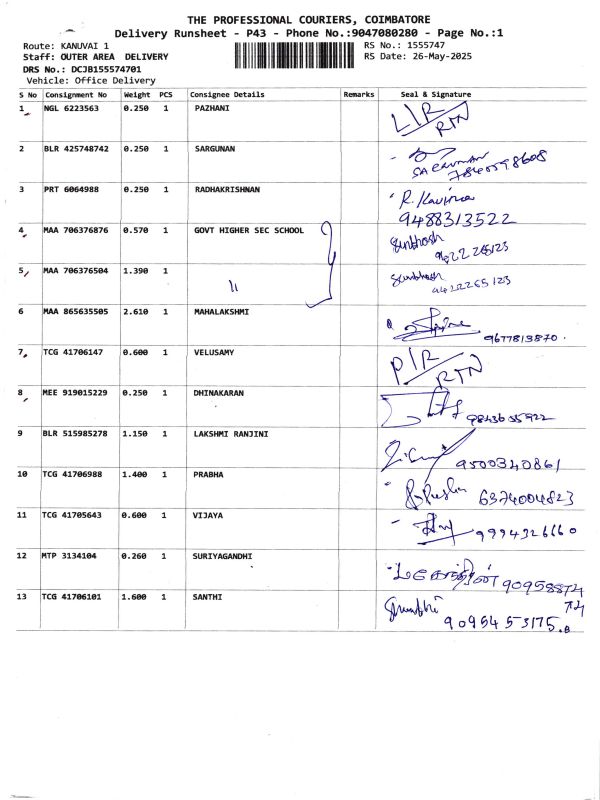 THE PROFESSIONAL COURIERS, COIMBATORE
Delivery Runsheet - P43 - Phone No.:9047080280 - Page No.:1
Route: KANUVAI 1
RS No.: 1555747
Staff: OUTER AREA DELIVERY
RS Date: 26-May-2025
DRS No.: DCJB155574701
Vehicle: Office Delivery
S No Consignment No Weight PCS Consignee Details Remarks Seal & Signature
1 NGL 6223563 0.250 1 PAZHANI L/R RTN
2 BLR 425748742 0.250 1 SARGUNAN
3 PRT 6064988 0.250 1 RADHAKRISHNAN R. Kavina
9488313522
4 MAA 706376876 0.570 1 GOVT HIGHER SEC SCHOOL Santhosh
5 MAA 706376504 1.390 1 " Santhosh
9422265123
6 MAA 865635505 2.610 1 MAHALAKSHMI
9677813870.
7 TCG 41706147 0.600 1 VELUSAMY P/R RTN
8 MEE 919015229 0.250 1 DHINAKARAN
9843635922
9 BLR 515985278 1.150 1 LAKSHMI RANJINI
9500340861
10 TCG 41706988 1.400 1 PRABHA
6374004823
11 TCG 41705643 0.600 1 VIJAYA
9994326660
12 MTP 3134104 0.260 1 SURIYAGANDHI 90958874
74
13 TCG 41706101 1.600 1 SANTHI
9095453175.